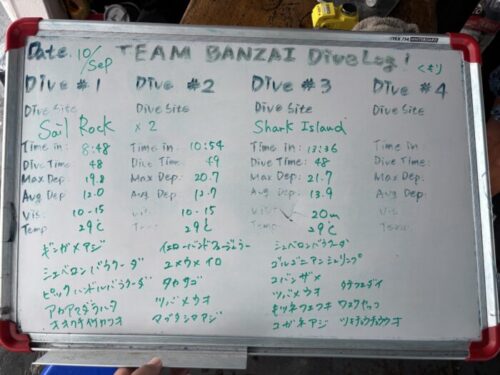 Date. 10/Sep TEAM BANZAI Dive Log! くもり
Dive #1 Dive #2 Dive #3 Dive #4
Dive Site Dive Site Dive Site Dive Site
Sail Rock x 2 Shark Island
Time in: 8:48 Time in: 10:54 Time in: 13:36 Time in:
Dive Time: 48 Dive Time: 49 Dive Time: 48 Dive Time:
Max Dep: 19.8 Max Dep: 20.7 Max Dep: 21.7 Max Dep:
Avg Dep: 12.0 Avg Dep: 12.7 Avg Dep: 13.9 Avg Dep:
Vis: 10-15 Vis: 10-15 20m Vis:
Temp 29℃ 29℃ 29℃
ギンガメアジ イエローバンドフュージュラー シェブロンバラクーダ
シェブロンバラクーダ ユメウメイロ ゴルゴニアンシュリンプ
ピックハンドルバラクーダ タカサゴ コバンザメ クラカオダイ
アカマダラハタ ツバメウオ ツバメウオ
マブタシマアジ コガネアジ